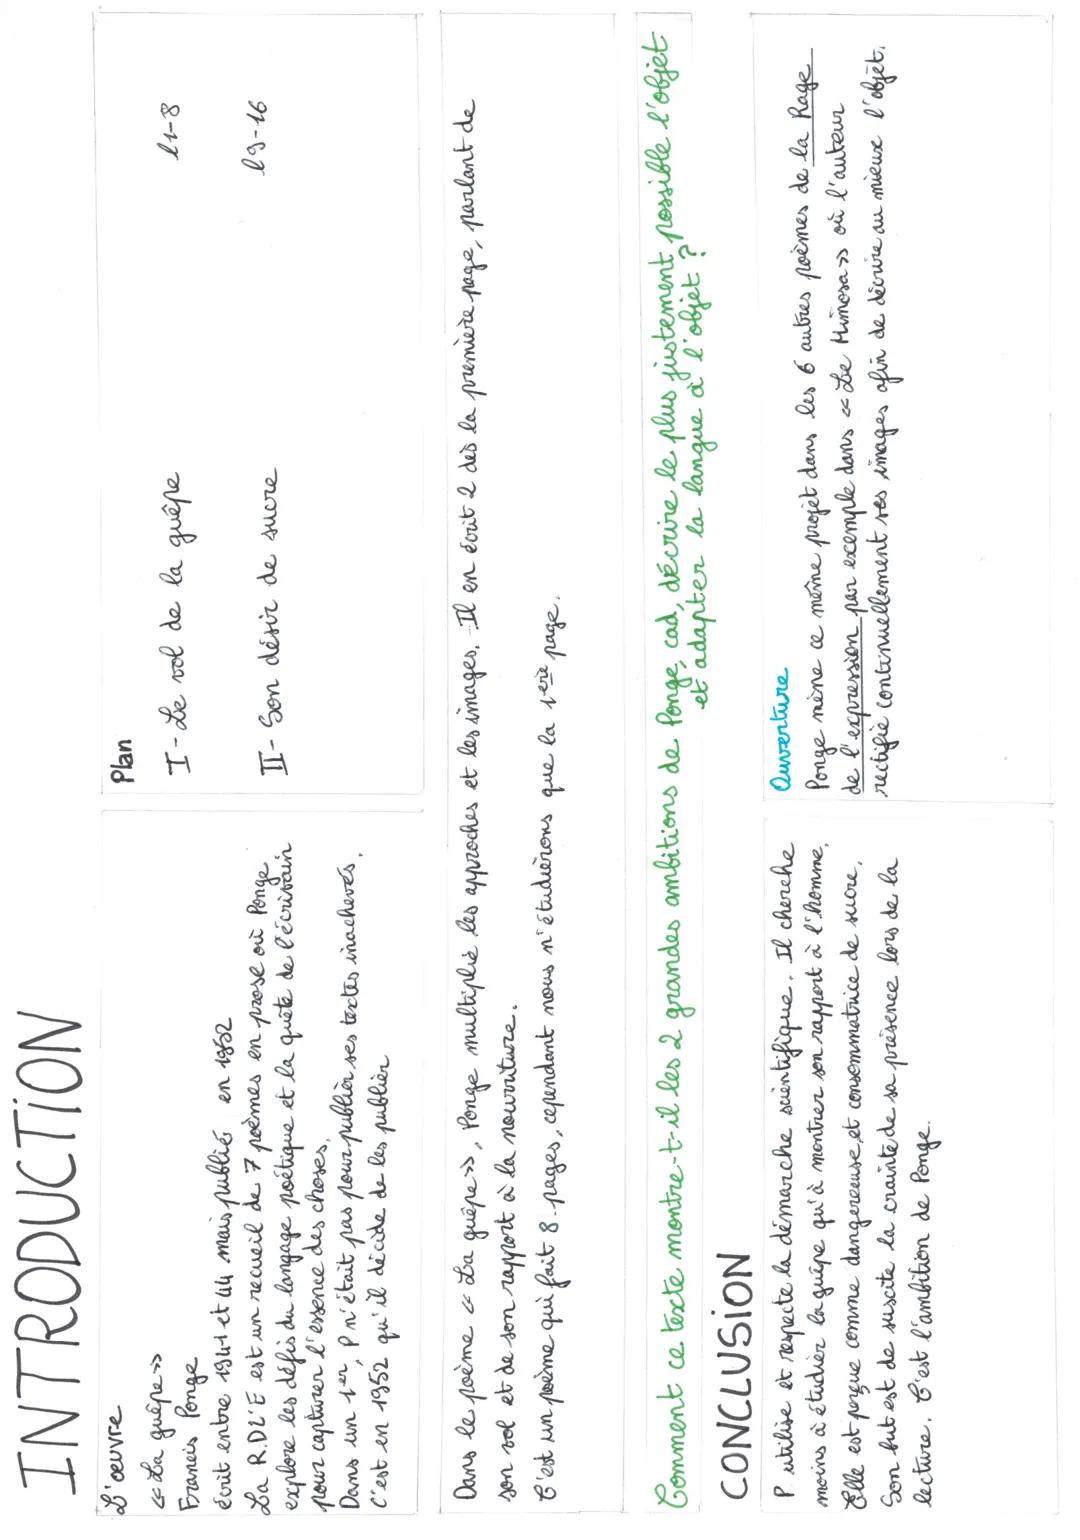 INTRODUCTION
L'œuvre
« La guêpe »
Francis Ponge
écrit entre 1941 et 44 mais publié en 1952
La R.DL'E est un recueil de 7 poèmes en prose où Ponge
explore les défis du langage poétique et la quête de l'écrivain
pour capturer l'essence des choses.
Dans un 1er, P n'était pas pour publier ses textes inachevés,
c'est en 1952 qu'il décide de les publier
Plan
I - Le vol de la guêpe l1-8
II - Son désir de sucre l9-16
Dans le poème « La guêpe », Ponge multiplie les approches et les images. Il en écrit 2 dès la première page, parlant de
son vol et de son rapport à la nourriture.
C'est un poème qui fait 8 pages, cependant nous n'étudierons que la 1ère page.
Comment ce texte montre-t-il les 2 grandes ambitions de Ponge, cad, décrire le plus justement possible l'objet
et adapter la langue à l'objet ?
CONCLUSION
P utilise et respecte la démarche scientifique. Il cherche
moins à étudier la guêpe qu'à montrer son rapport à l'homme.
Elle est perçue comme dangereuse et consommatrice de sucre.
Son but est de suscite la crainte de sa présence lors de la
lecture. C'est l'ambition de Ponge.
Ouverture
Ponge mène ce même projet dans les 6 autres poèmes de la Rage
de l'expression par exemple dans « Le Mimosa » où l'auteur
rectifie continuellement ses images afin de décrire au mieux l'objet.